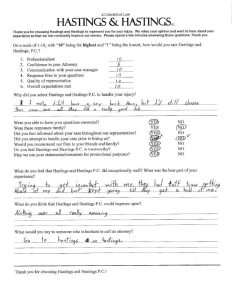 ATTORNEYS AT LAW
HASTINGS & HASTINGS.
Thank you for choosing Hastings and Hastings to represent you for your injury. We value your opinion and want to hear about your
experience so that we can constantly improve our service. Please spend a few minutes answering these questions. Thank you.
On a scale of 1-10, with "10" being the highest and "1" being the lowest, how would you rate Hastings and
Hastings, P.C.?
1. Professionalism 10
2. Confidence in your Attorney
3. Communication with your case manager 10
4. Response time to your questions 10
5. Quality of representation 10
6. Overall expectations met 10
Why did you select Hastings and Hastings P.C. to handle your injury?
I really didn't have a say but I'd still choose
you all did a really good
Were you able to have your questions answered? YES NO
Were these responses timely? YES NO
Did you feel informed about your case throughout our representation? YES NO
Did your attempt to handle your case prior to hiring us? YES NO
Would you recommend our firm to your friends and family? YES NO
Do you feel Hastings and Hastings P.C. is trustworthy? YES NO
May we use your statements/comments for promotional purposes? YES NO
What do you feel that Hastings and Hastings P.C. did exceptionally well? What was the best part of your
experience?
Trying to get in contact with me. They had tuff time getting
hold of me but kept going till they got a hold of me.
What do you think that Hastings and Hastings P.C. could improve upon?
Nothing over all really amazing
What would you say to someone who is hesitant to call an attorney?
Go to hastings & hastings.
Thank you for choosing Hastings and Hastings P.C.!